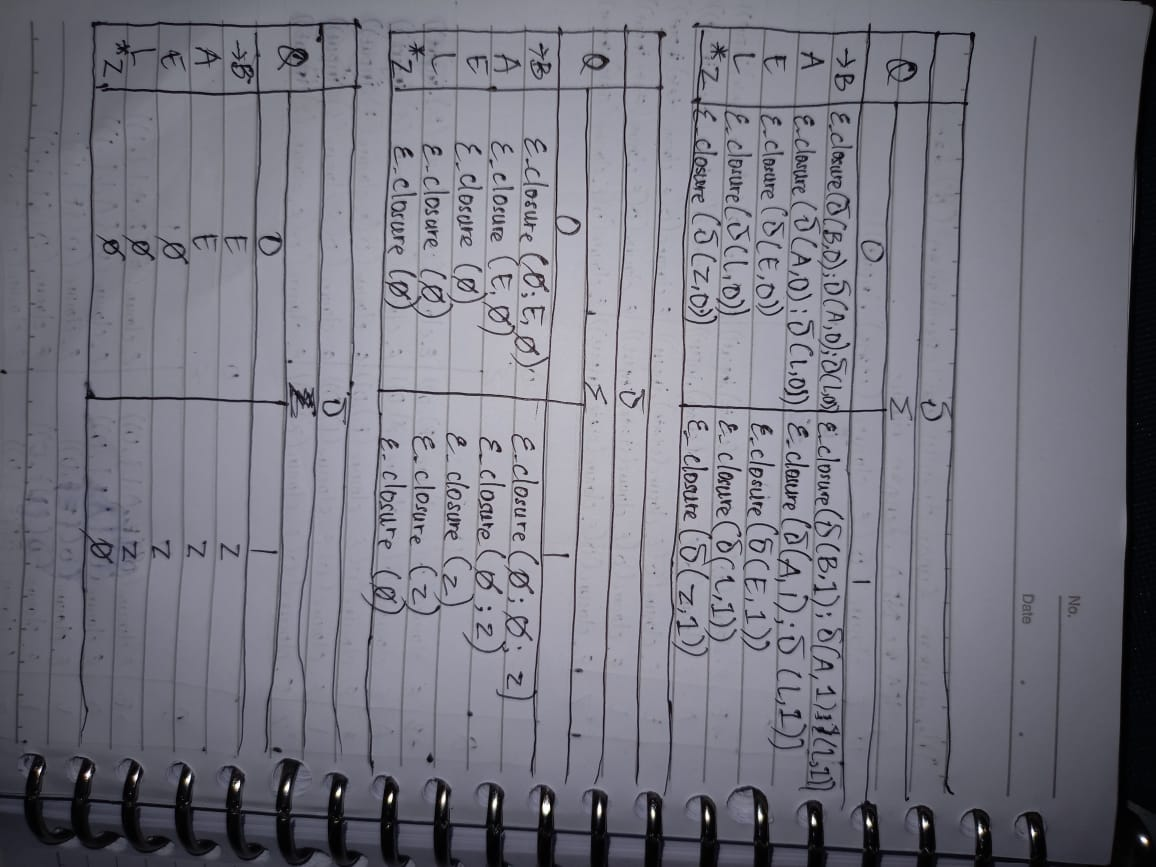 No.
Date
δ
Q Σ
0 1
→B ε_closure(δ(B,0); δ(A,0); δ(L,0)) ε_closure(δ(B,1); δ(A,1); δ(L,1))
A ε_closure(δ(A,0); δ(L,0)) ε_closure(δ(A,1); δ(L,1))
E ε_closure(δ(E,0)) ε_closure(δ(E,1))
L ε_closure(δ(L,0)) ε_closure(δ(L,1))
*Z ε_closure(δ(Z,0)) ε_closure(δ(Z,1))
δ
Q Σ
0 1
→B ε_closure(Ø; E, Ø) ε_closure(Ø; Ø; Z)
A ε_closure(E, Ø) ε_closure(Ø; Z)
E ε_closure(Ø) ε_closure(Z)
L ε_closure(Ø) ε_closure(Z)
*Z ε_closure(Ø) ε_closure(Ø)
δ
Q Σ
0 1
→B E Z
A E Z
E Ø Z
L Ø Z
*Z Ø Ø